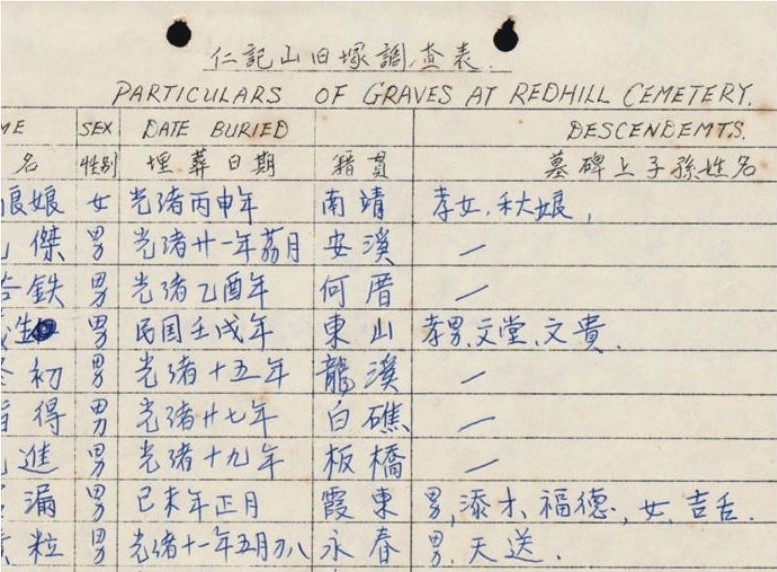 仁記山旧塚調查表.
PARTICULARS OF GRAVES AT REDHILL CEMETERY.
ME SEX DATE BURIED DESCENDEMTS.
名 性别 埋葬日期 籍貫 墓碑上子孫姓名
娘 女 光緒丙申年 南靖 孝女,秋娘,
傑 男 光緒廿一年荔月 安溪 —
鉄 男 光绪乙酉年 何厝 —
男 民国壬戌年 東山 孝男,文堂、文貴.
初 男 光绪十五年 龍溪 —
得 男 光绪廿七年 白礁 —
進 男 光绪十九年 板橋 —
漏 男 己未年正月 霞東 男,添才、福德,女,吉舌.
粒 男 光绪十一年五月 永春 男,天送.